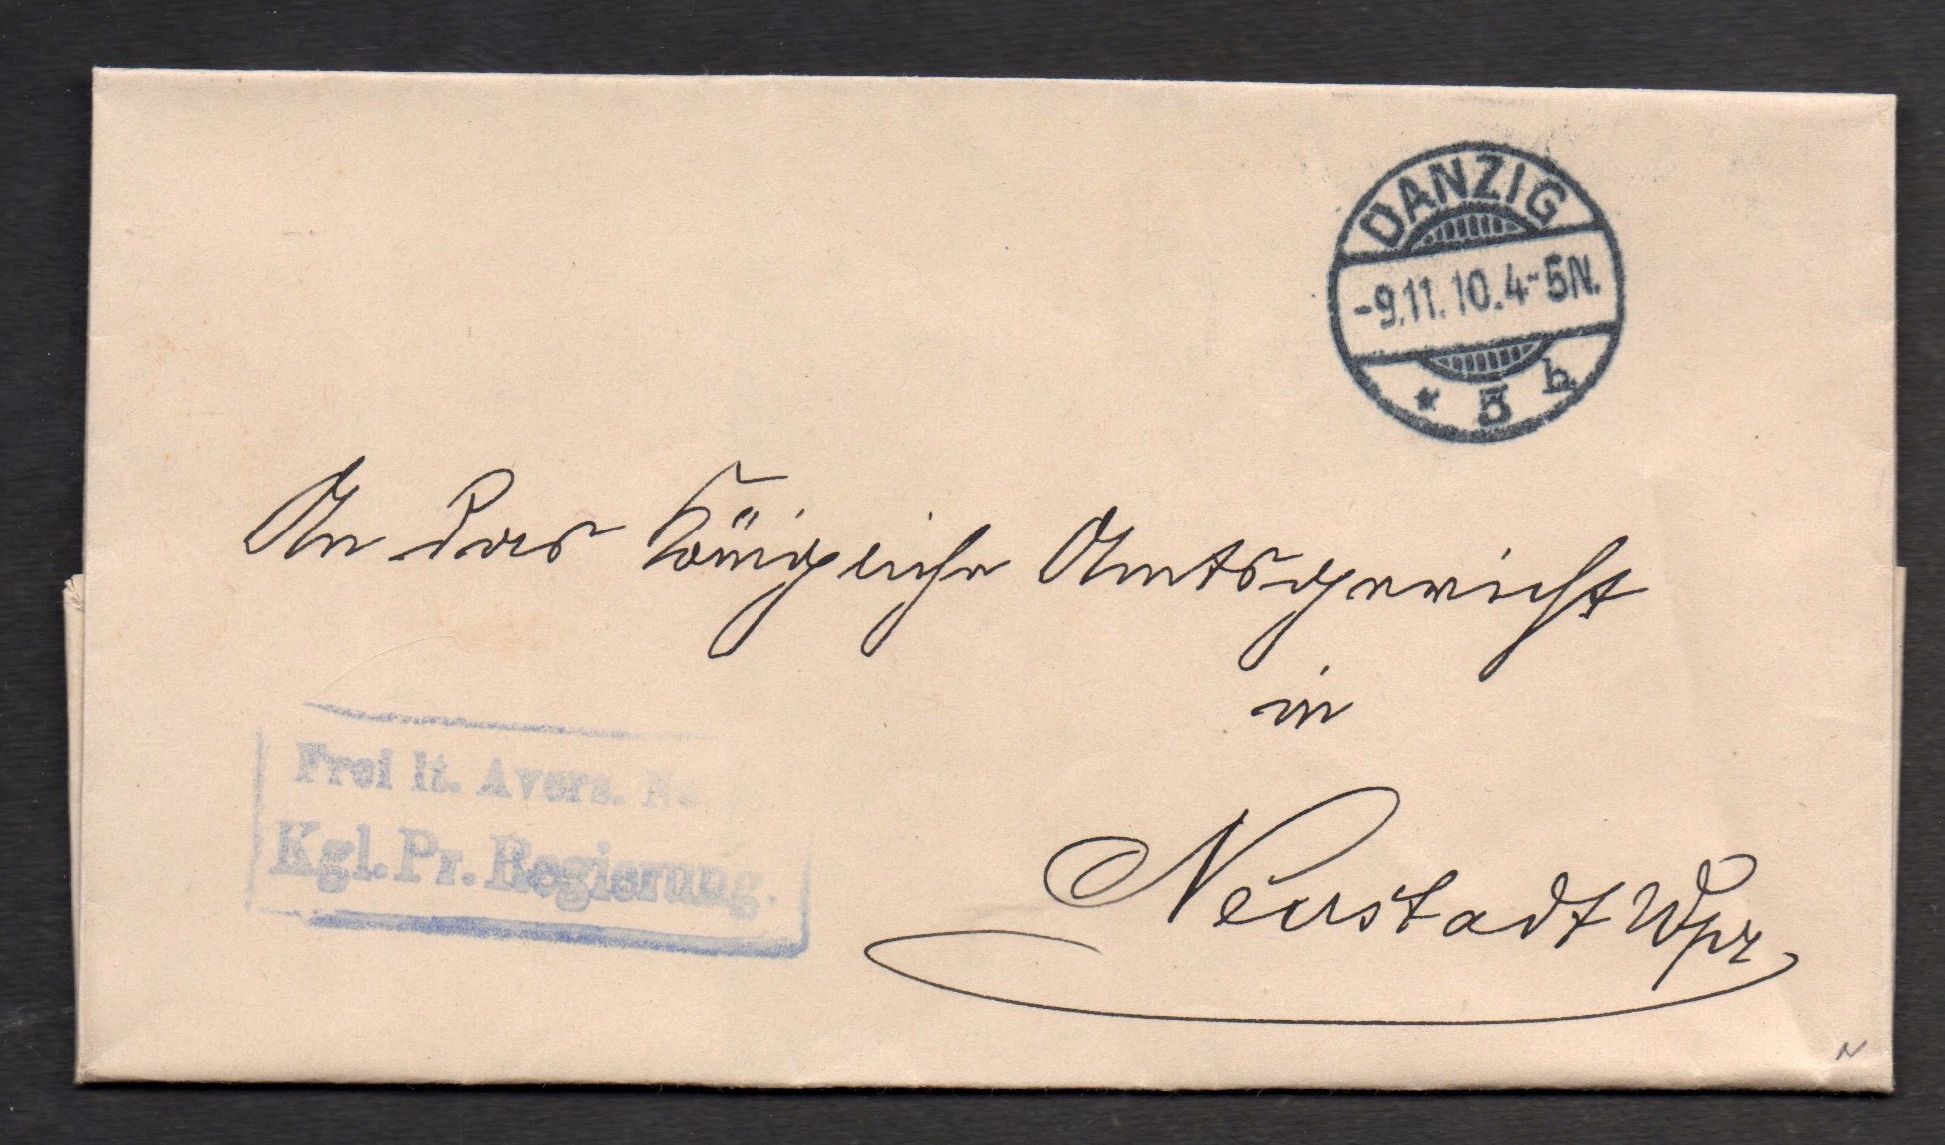 DANZIG
-9.11.10.4-5N.
* 5 h
An das Königliche Amtsgericht
in
Neustadt Wpr
Frei lt. Avers. No
Kgl. Pr. Regierung.